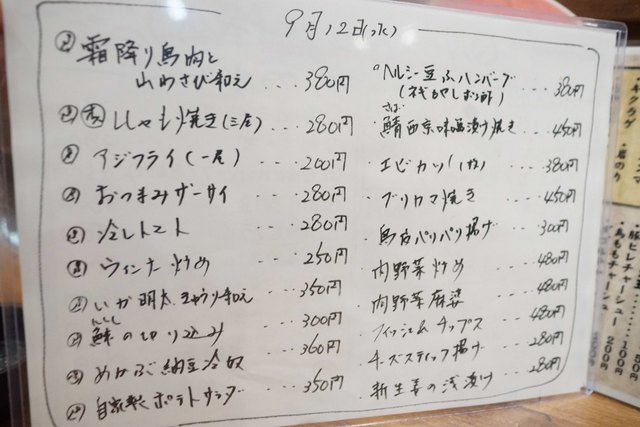 9月12日(水)
霜降り鳥肉と
山わさび和え ... 380円
ししゃも焼き(三尾) ... 280円
アジフライ(一尾) ... 200円
おつまみザーサイ ... 280円
冷しトマト ... 280円
ウィンナー炒め ... 250円
いか明太きゅうり和え ... 350円
にしん
鰊の切り込み ... 300円
めかぶ納豆冷奴 ... 360円
自家製ポテトサラダ ... 350円
ヘルシー豆ふハンバーグ
(ネギもやしおろしポン酢) ... 380円
さば
鯖西京味噌漬け焼き ... 450円
エビカツ(1枚) ... 380円
ブリカマ焼き ... 450円
鳥皮パリパリ揚げ ... 300円
肉野菜炒め ... 480円
肉野菜麻婆 ... 480円
フィッシュ&チップス ... 480円
チーズスティック揚げ ... 280円
新生姜の浅漬け ... 280円
豚ヒレチャーシュー
鳥ももチャーシュー
100
200円